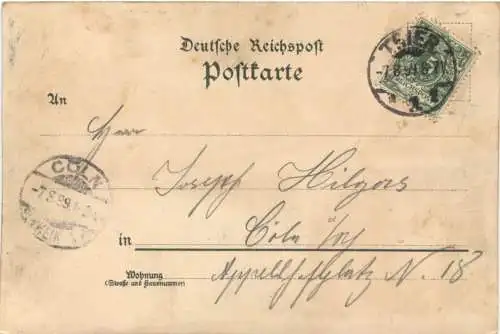 Deutsche Reichspost
Postkarte
TRIER
-7.8.99.6-7N
* 1 *
An
Herrn
Joseph Hilgers
CÖLN
-7.8.99.
in Cöln
Wohnung
(Straße und Hausnummer)
Appellhofsplatz N. 18